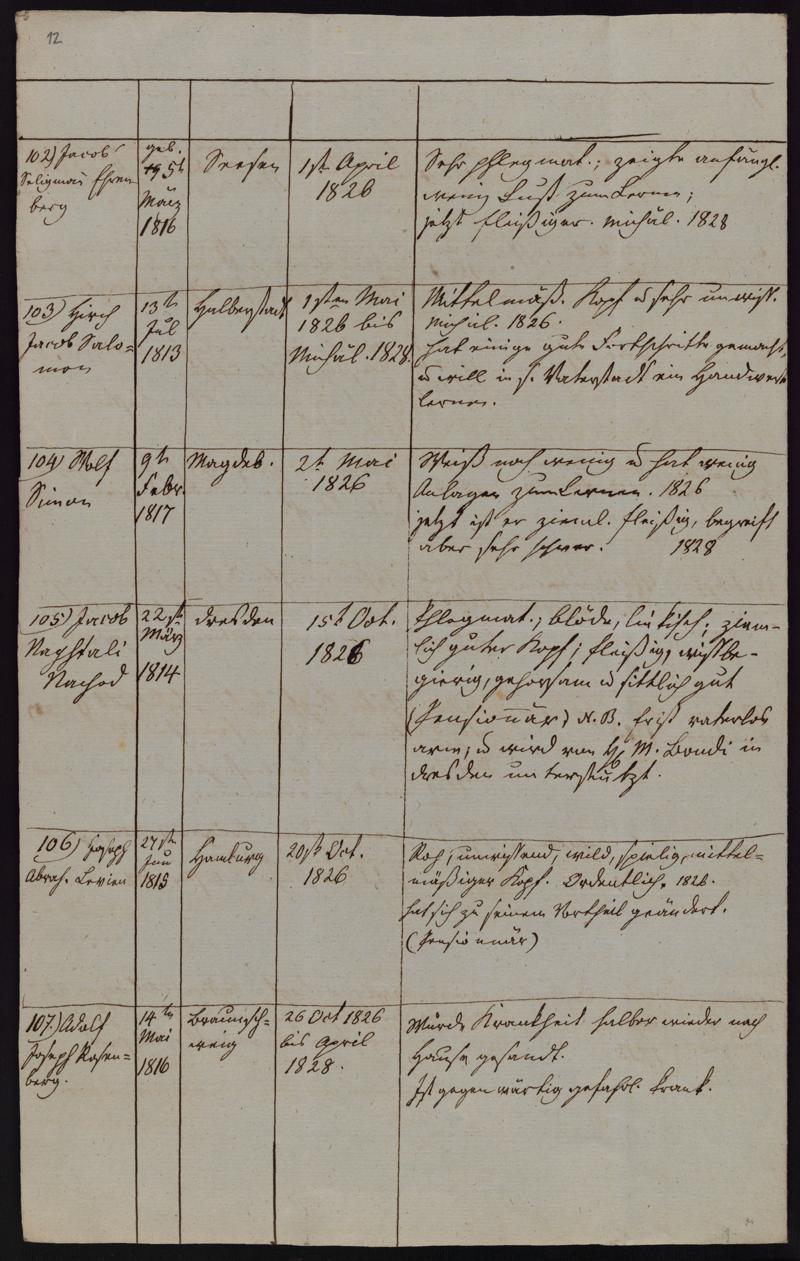 12
102) Jacob
Seligman Ehren
berg
geb.
5t
März
1816
Seesen
1st April
1826
Sehr phlegmat.; zeigte anfängl.
wenig Lust zum Lernen;
jetzt fleißiger. Michäl. 1828
103) Hirch
Jacob Salo=
mon
13th
Jul
1813
Halberstadt
1sten Mai
1826 bis
Michäl. 1828.
Mittelmäß. Kopf u sehr unwiss.
Michäl. 1826.
hat einige gute Fortschritte gemacht,
u will in s. Vaterstadt ein Handwerk
lernen.
104) Wolf
Simon
9th
Febr.
1817
Magdeb.
2t Mai
1826
Weiß noch wenig u hat wenig
Anlagen zum Lernen. 1826
jetzt ist er zieml. fleißig, begreift
aber sehr schwer. 1828
105) Jacob
Naphtali
Nachod
22st
März
1814
Dresden
15t Oct.
1826
Phlegmat., blöde, linkisch; ziem-
lich guter Kopf; fleißig, wißbe-
gierig, gehorsam u sittlich gut
(Pensionär) N.B. Er ist vaterlos
arm, u wird von H. M. Bondi in
Dresden unterstützt.
106) Joseph
Abrah. Levien
27st
Jun
1815
Hamburg
20st Oct.
1826
Roh, unwissend, wild, spielig, mittel=
mäßiger Kopf. Ordentlich. 1826.
hat sich zu seinem Vortheil geändert.
(Pensionär)
107.) Adolf
Joseph Rosen=
berg.
14th
Mai
1816
Braunsch=
weig
26 Oct 1826
bis April
1828.
Wurde Krankheit halber wieder nach
Hause gesandt.
Ist gegenwärtig gefährl. krank.